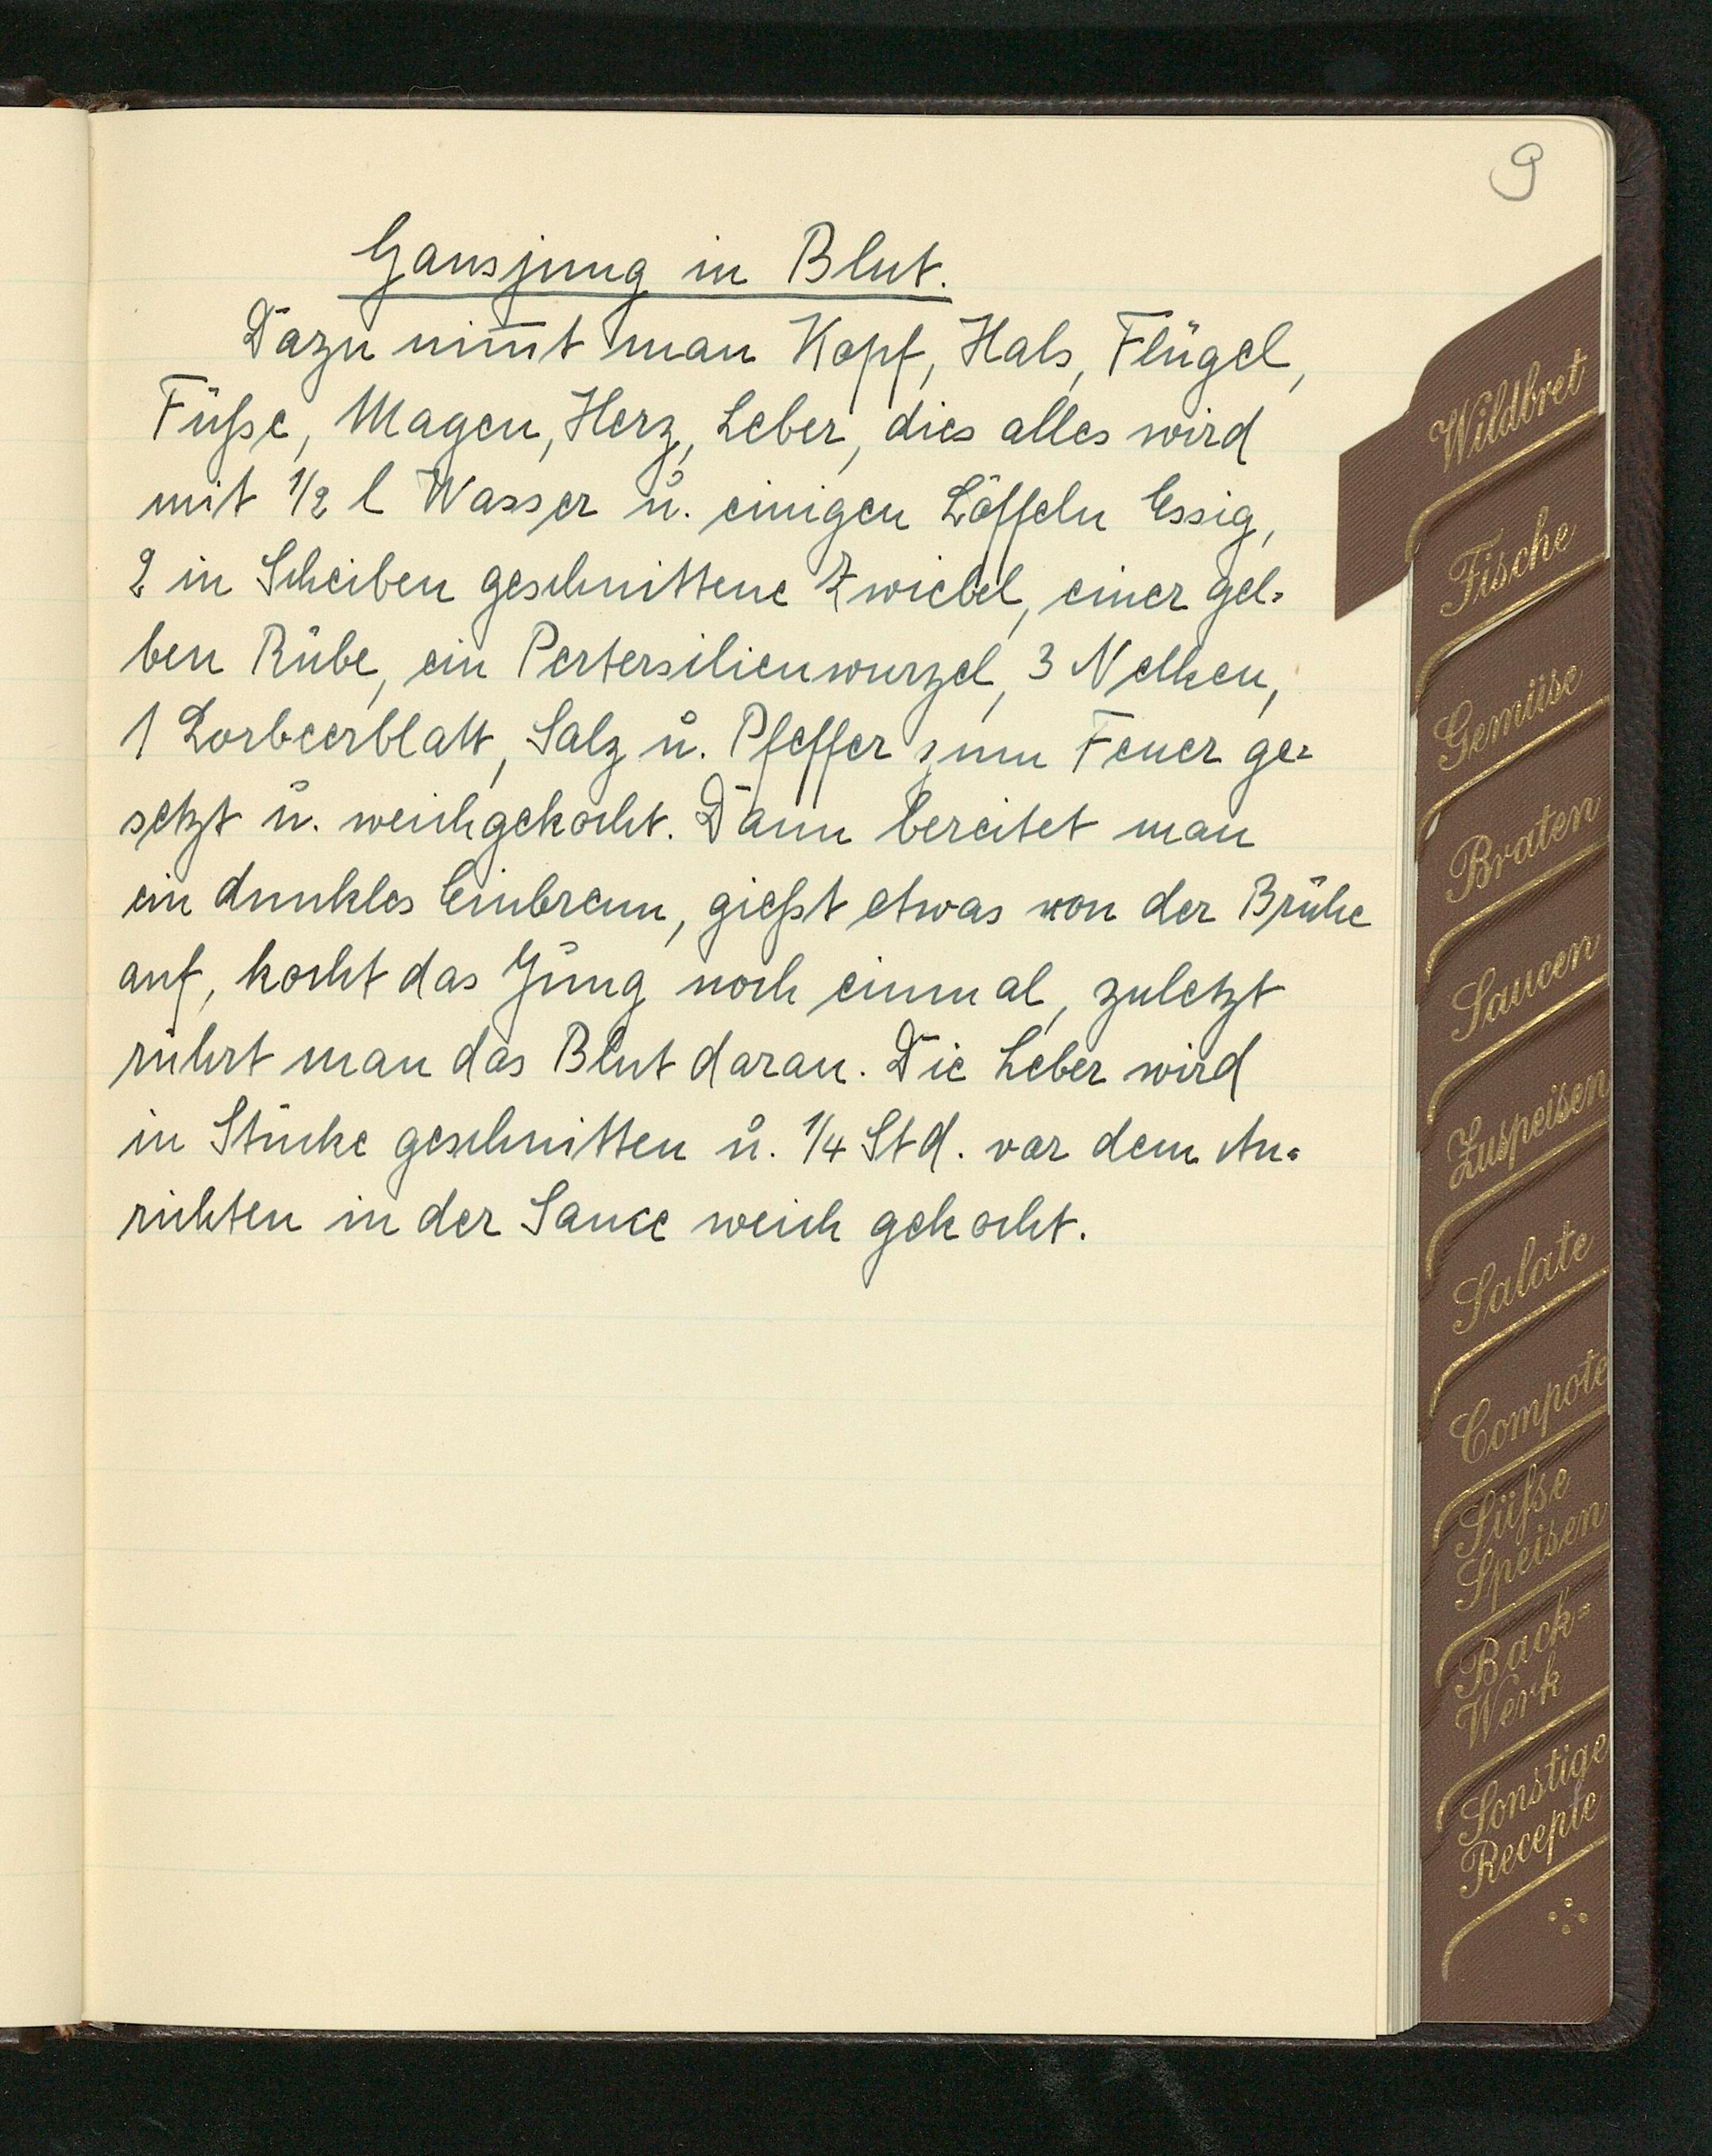 9
Gansjung in Blut.
Dazu nim̅t man Kopf, Hals, Flügel,
Füße, Magen, Herz, Leber, dies alles wird
mit 1/2 l Wasser u. einigen Löffeln Essig,
2 in Scheiben geschnittene Zwiebel, einer gel=
ben Rübe, ein Pertersilienwurzel, 3 Nelken,
1 Lorbeerblatt, Salz u. Pfeffer zum Feuer ge=
setzt u. weichgekocht. Dann bereitet man
ein dunkles Einbrenn, gießt etwas von der Brühe
auf, kocht das Jung noch einmal, zuletzt
rührt man das Blut daran. Die Leber wird
in Stücke geschnitten u. 1/4 Std. vor dem An=
richten in der Sauce weich gekocht.
Wildbret
Fische
Gemüse
Braten
Saucen
Zuspeisen
Salate
Compote
Süße
Speisen
Back=
Werk
Sonstige
Recepte